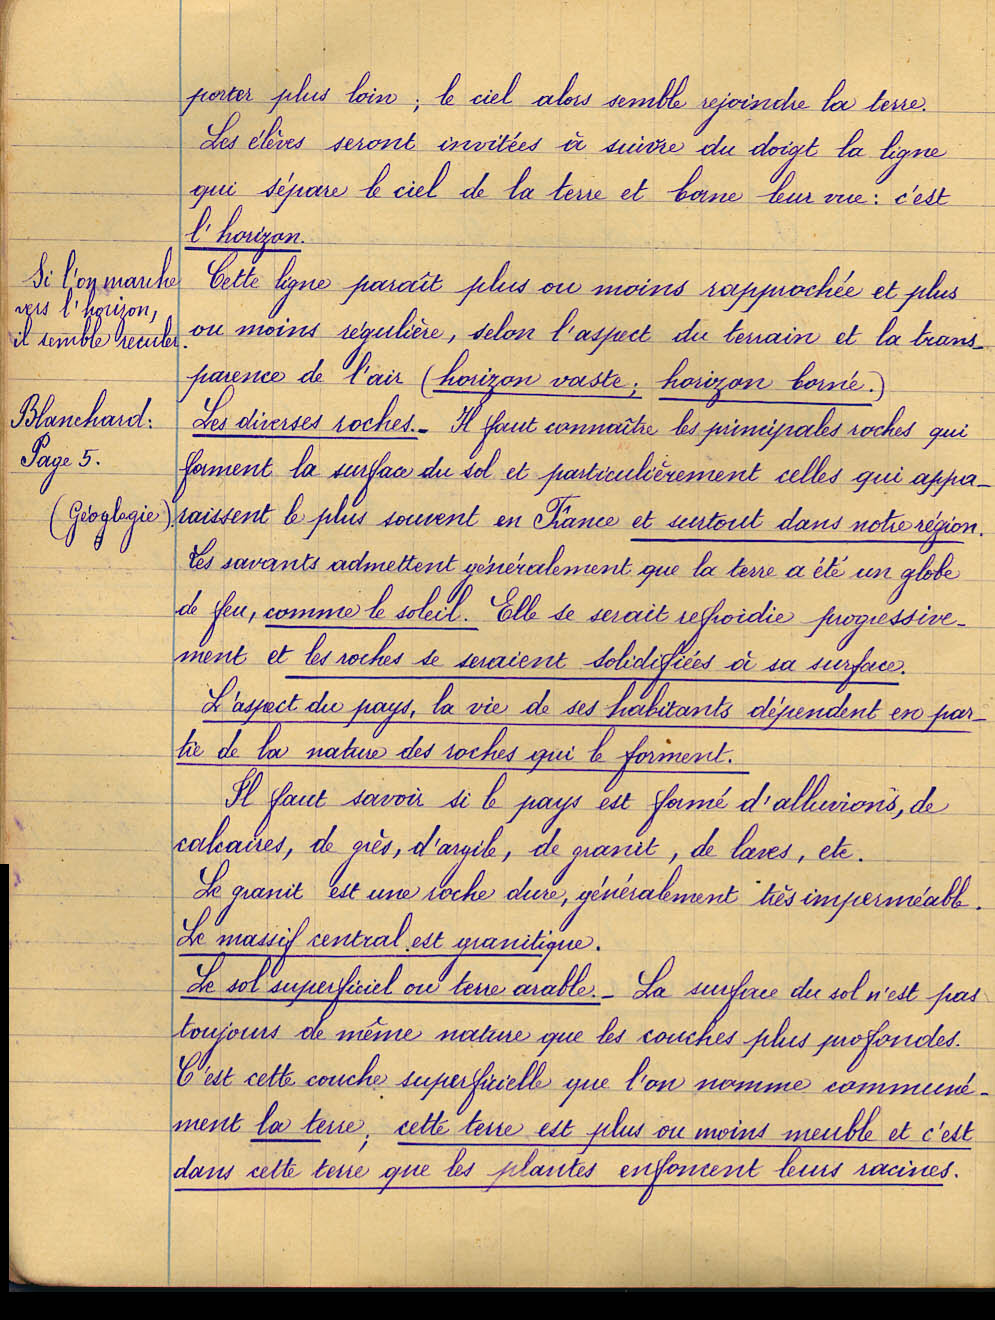 porter plus loin ; le ciel alors semble rejoindre la terre.
Les élèves seront invitées à suivre du doigt la ligne
qui sépare le ciel de la terre et borne leur vue : c'est
l'horizon.
Si l'on marche
vers l'horizon,
il semble reculer.
Cette ligne paraît plus ou moins rapprochée et plus
ou moins régulière, selon l'aspect du terrain et la trans-
parence de l'air (horizon vaste ; horizon borné.)
Blanchard :
Page 5.
(Géologie)
Les diverses roches. - Il faut connaître les principales roches qui
forment la surface du sol et particulièrement celles qui appa-
raissent le plus souvent en France et surtout dans notre région.
Les savants admettent généralement que la terre a été un globe
de feu, comme le soleil. Elle se serait refroidie progressive-
ment et les roches se seraient solidifiées à sa surface.
L'aspect du pays, la vie de ses habitants dépendent en par-
tie de la nature des roches qui le forment.
Il faut savoir si le pays est formé d'alluvions, de
calcaires, de grès, d'argile, de granit, de laves, etc.
Le granit est une roche dure, généralement très imperméable.
Le massif central est granitique.
Le sol superficiel ou terre arable. - La surface du sol n'est pas
toujours de même nature que les couches plus profondes.
C'est cette couche superficielle que l'on nomme communé-
ment la terre ; cette terre est plus ou moins meuble et c'est
dans cette terre que les plantes enfoncent leurs racines.